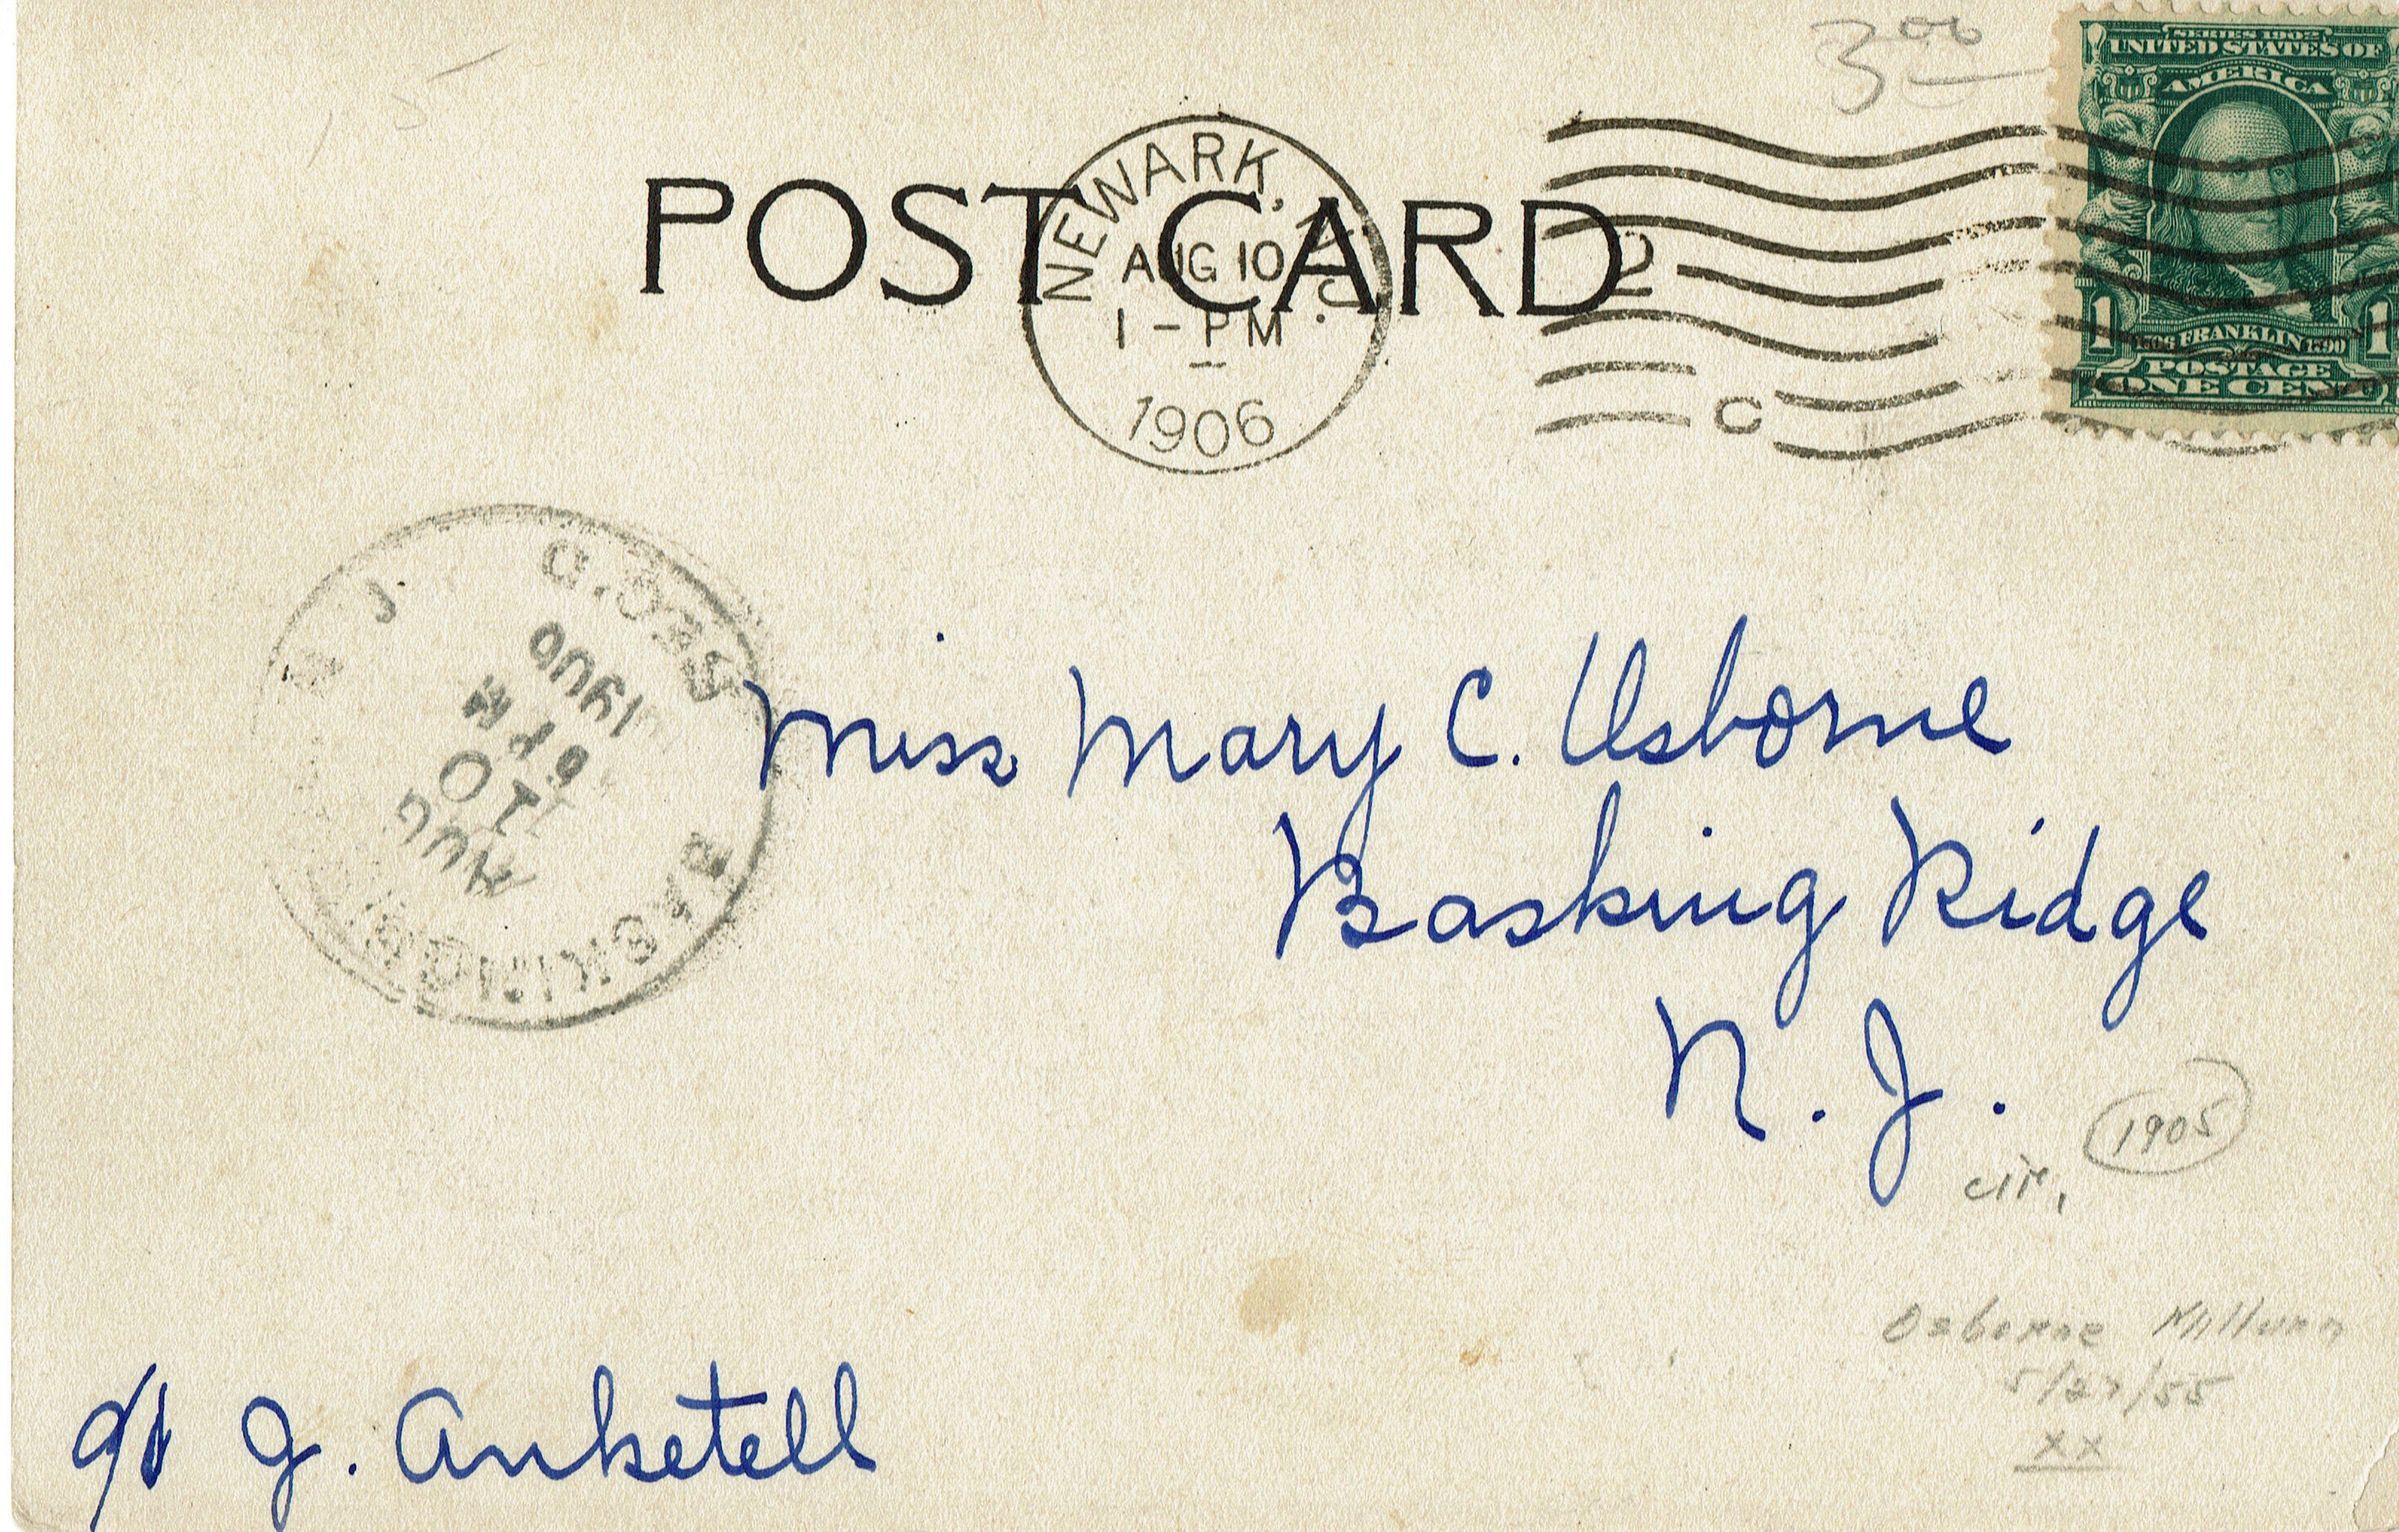 3.00
SERIES 1902
UNITED STATES OF
AMERICA
1 FRANKLIN 1
POSTAGE
ONE CENT
POST CARD
NEWARK, N.J.
AUG 10
1 - PM
1906
2
C
N J.
AUG
10
6 PM
1906
BASKING
Miss Mary C. Osborne
Basking Ridge
N. J.
1905
cir.
Osborne Millburn
5/27/55
XX
J. Anketell